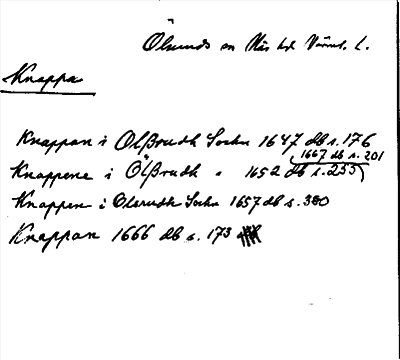 Ölseruds sn Näs hd Värml. L.
Knappa
Knappan i Olßrudh Sochn 1647 db s. 176
1667 db s. 201
Knappene i Ölßrudh " 1652 db s. 255
Knappen i Olsrudh Sochn 1657 db s. 380
Knappan 1666 db s. 173